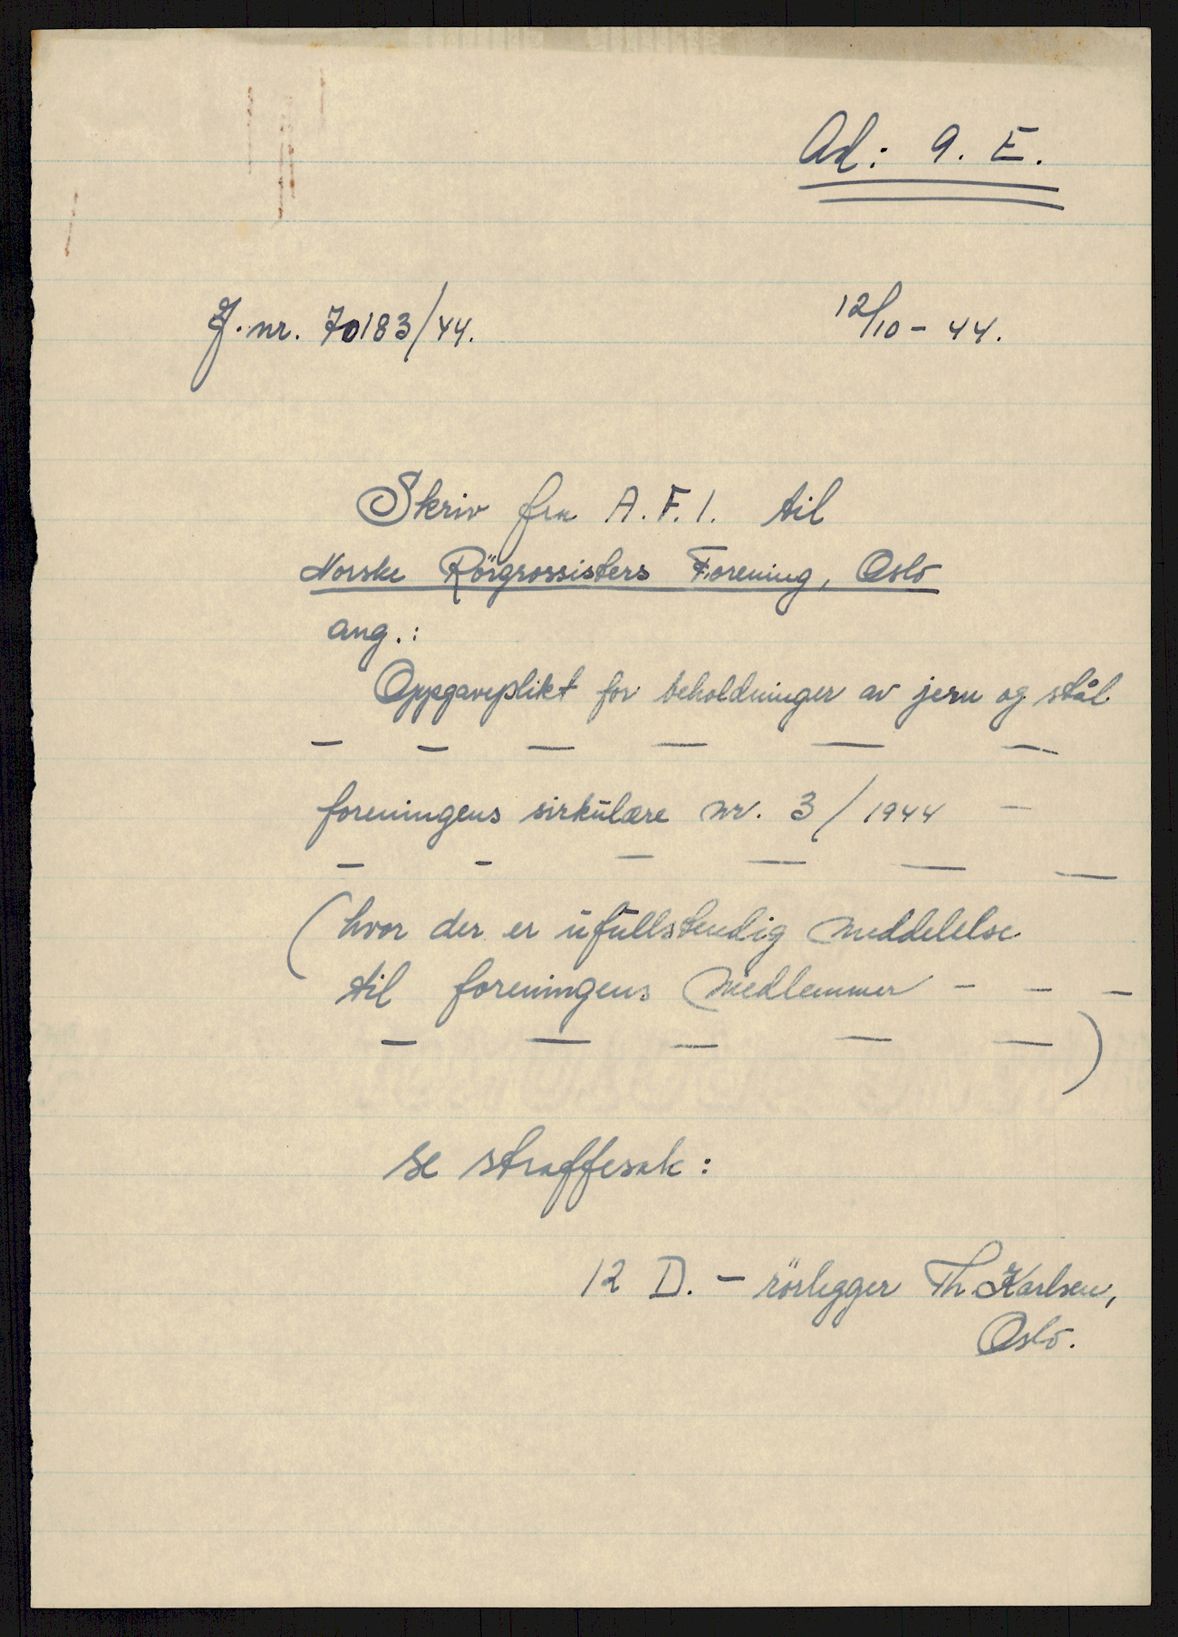 Ad: 9. E.
J. nr. 70183/44.
12/10 - 44.
Skriv fra A. F. I. til
Norske Rörgrossisters Forening, Oslo
ang.:
Oppgaveplikt for beholdninger av jern og stål
— — — — — —
foreningens sirkulære nr. 3/1944 —
— — — — — —
(hvor der er ufullstendig meddelelse
til foreningens medlemmer - - -
— — — — —)
se straffesak:
12 D. - rörlegger Th. Karlsen,
Oslo.